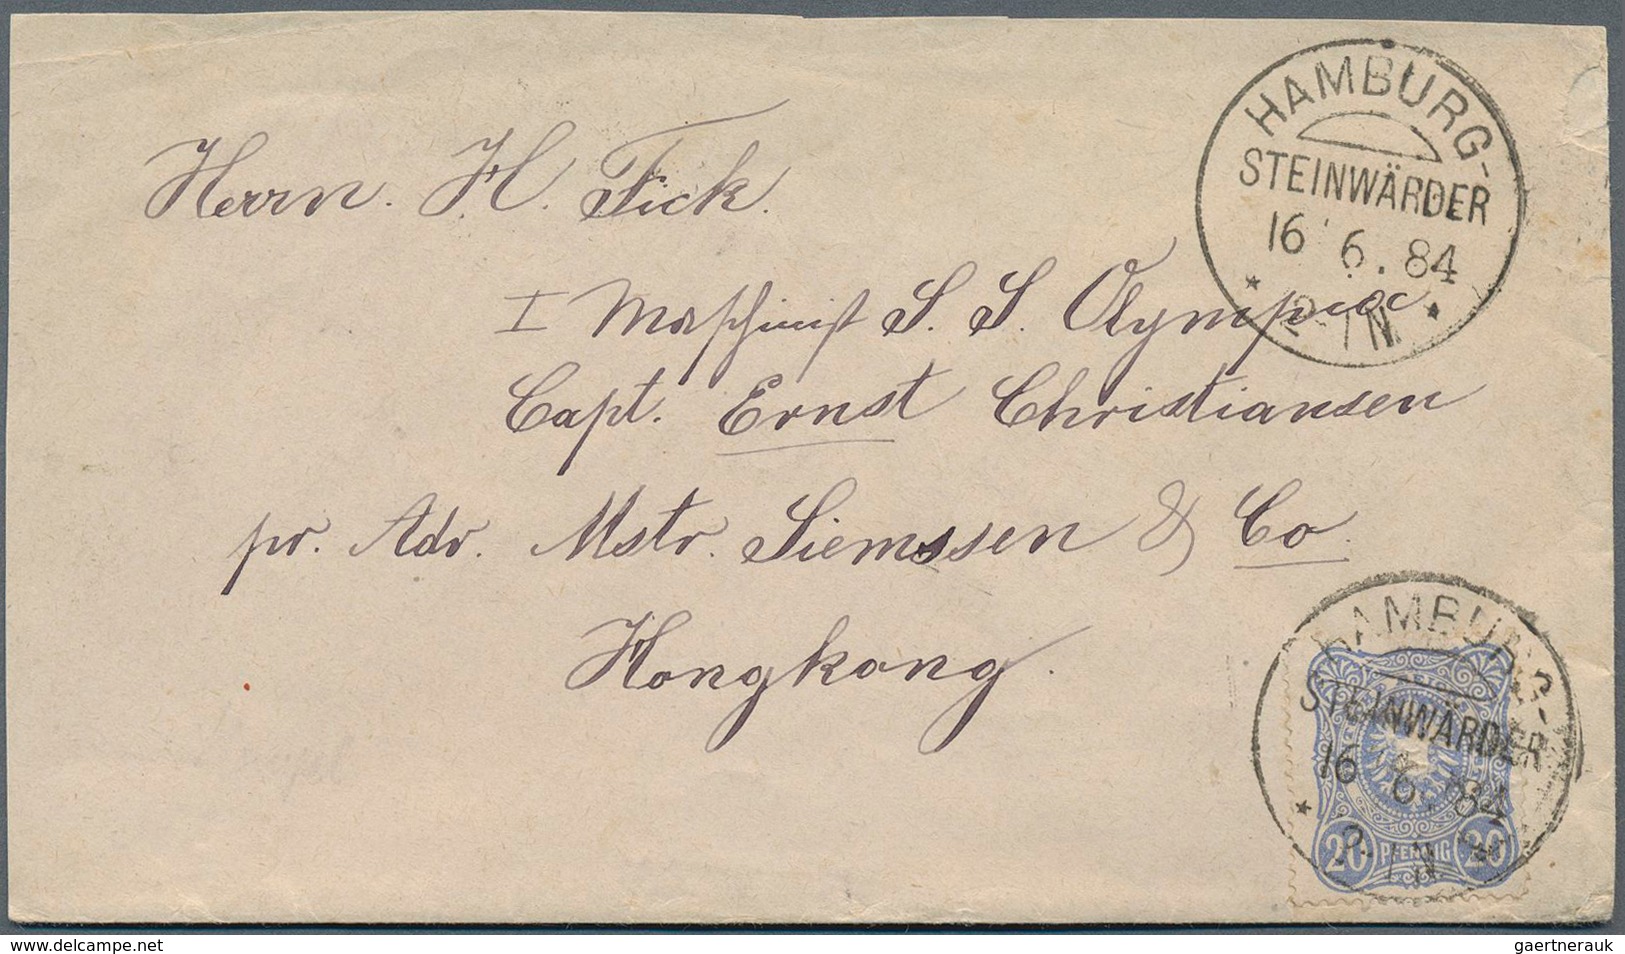 HAMBURG-
STEINWÄRDER
16 6. 84
* N *
Herrn. H. Fick.
I Maschinist S. S. Olympia
Capt. Ernst Christiansen
pr. Adr. Mstr. Siemssen & Co.
Hongkong.
HAMBURG-
STEINWÄRDER
16 6. 84
* N *
20 PFENNIG 20
www.delcampe.net
gaertnerauk